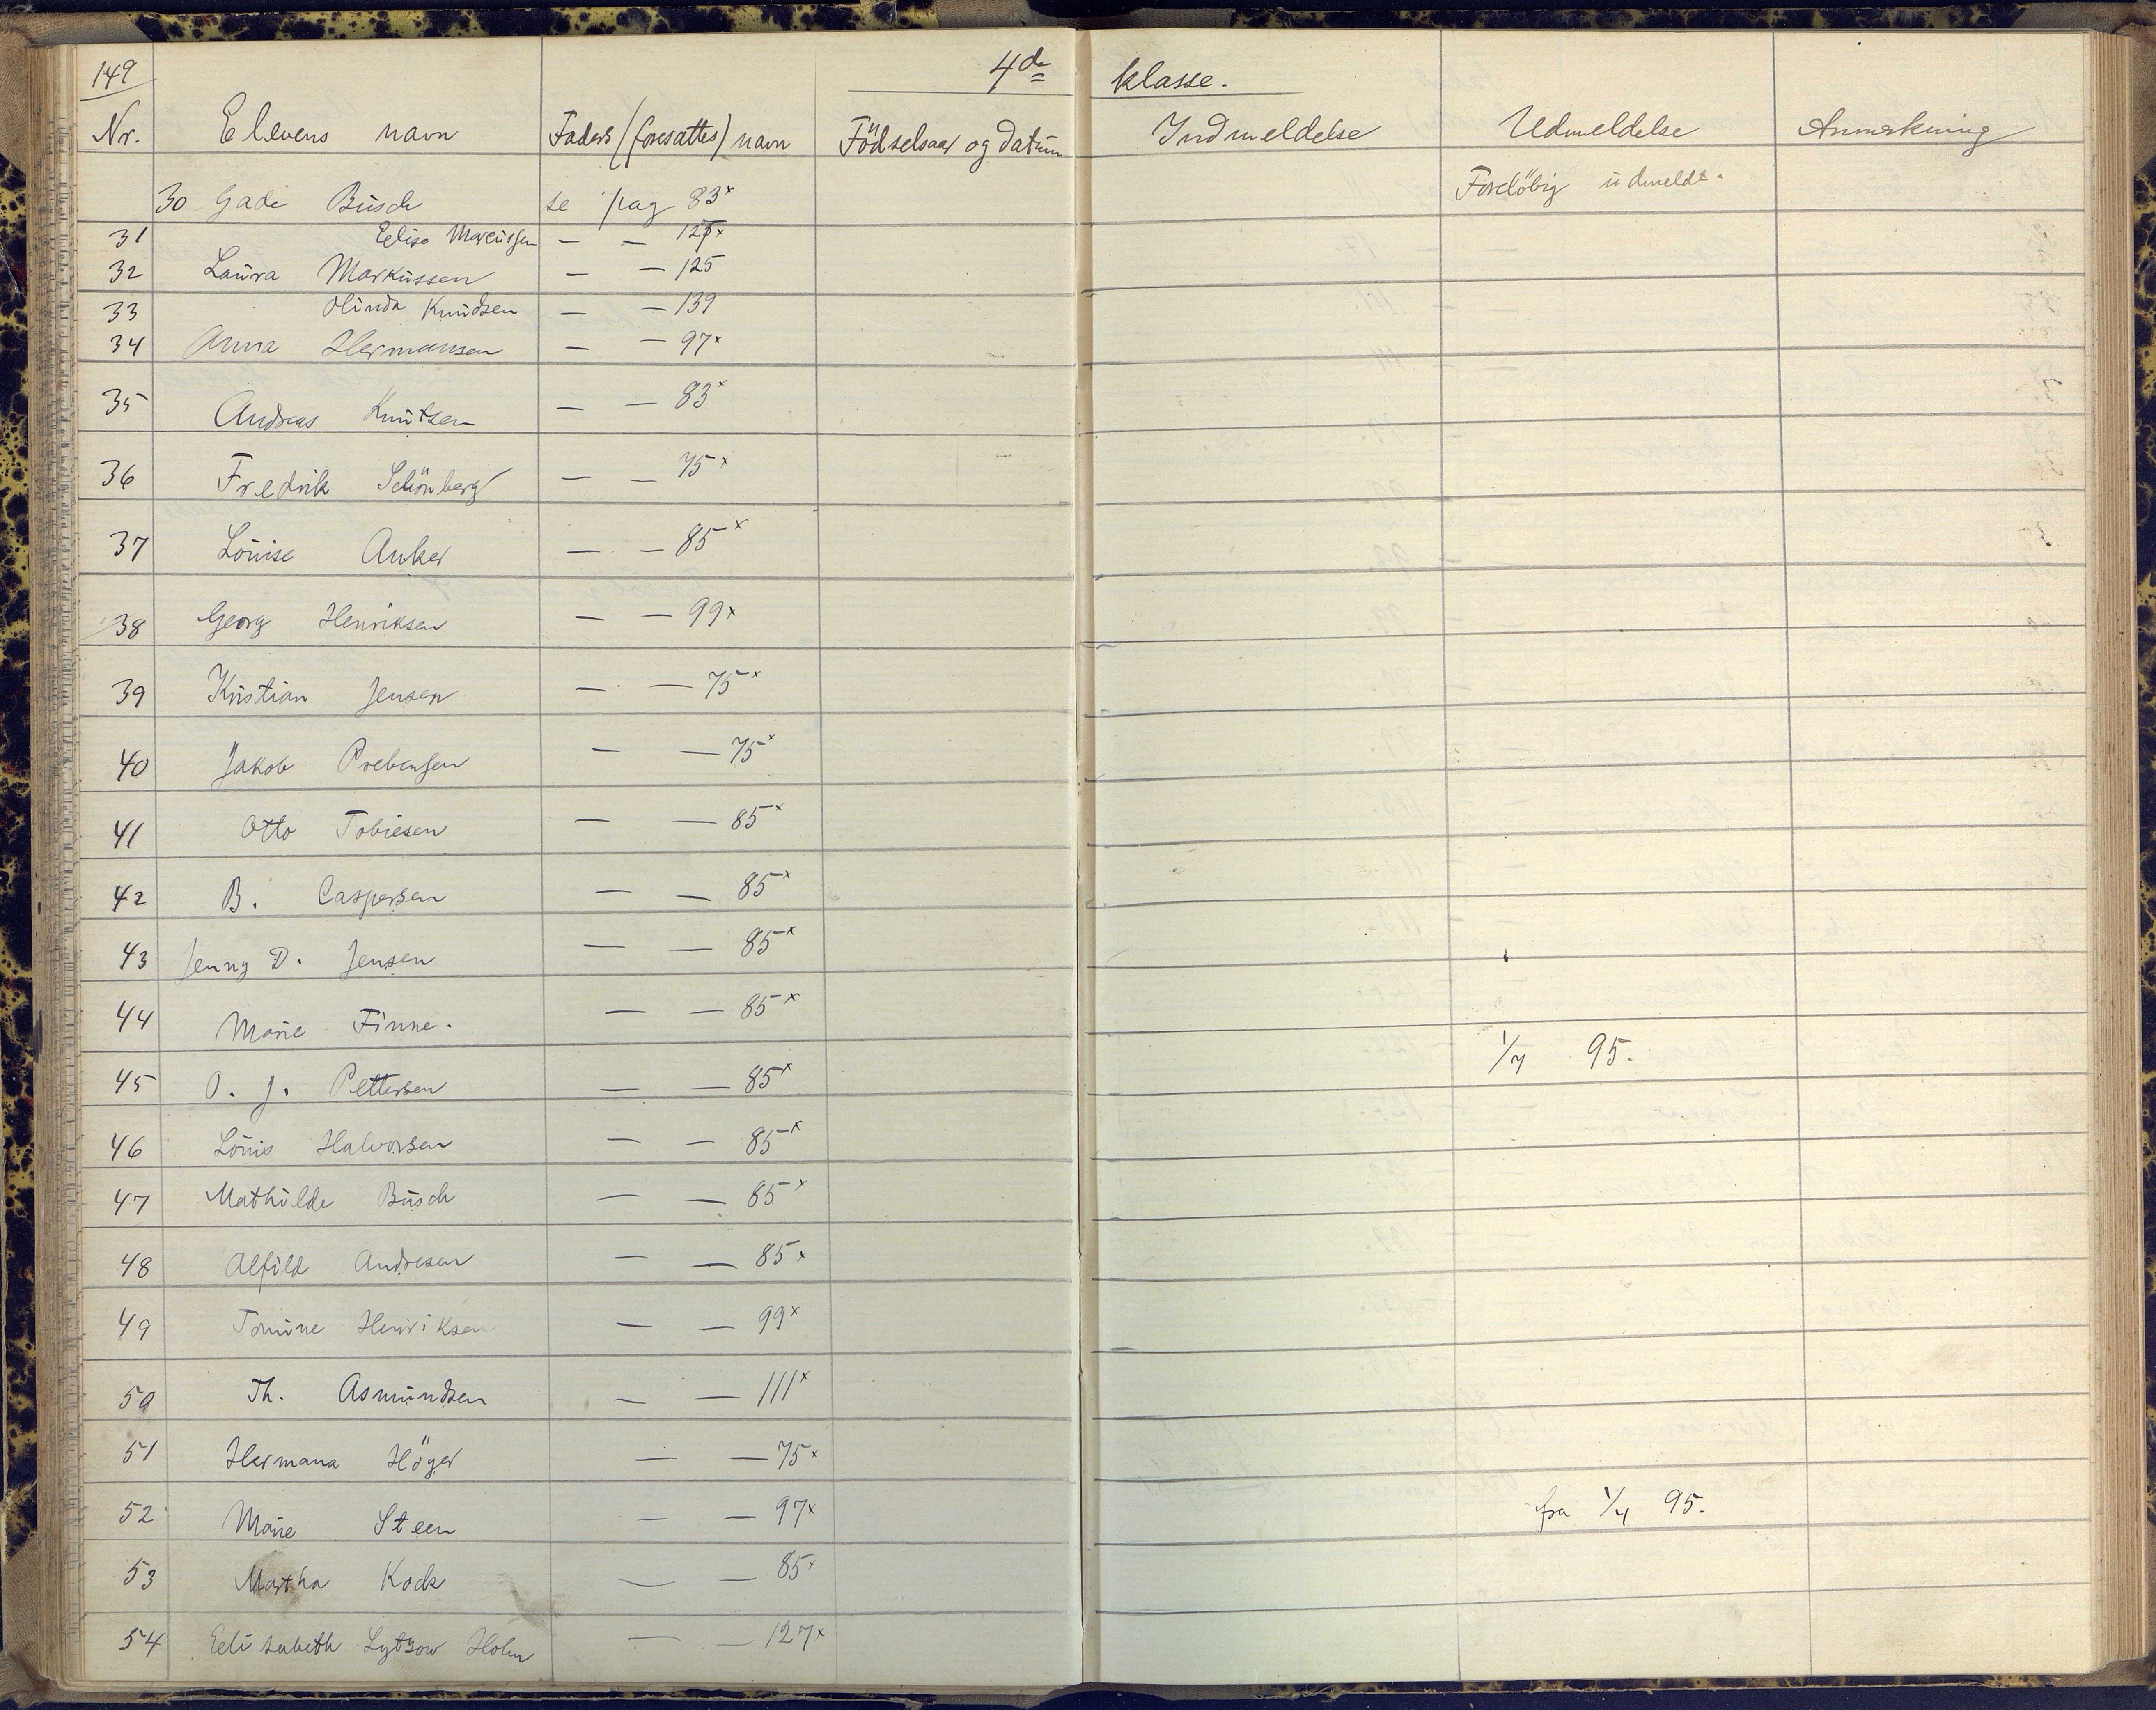 149 4de klasse.
Nr. Elevens navn Faders (foresattes) navn Födselsaar og datum Indmeldelse Udmeldelse Anmerkning
30 Gade Busch se pag 83x Forelöbig udmeldt.
31 Eelise Marcussen — — 125x
32 Laura Markussen — — 125
33 Olinda Knudsen — — 139
34 Anna Hermansen — — 97x
35 Andreas Knutsen — — 83x
36 Fredrik Schönberg — — 75x
37 Louise Anker — — 85x
38 Georg Henriksen — — 99x
39 Kristian Jensen — — 75x
40 Jakob Prebensen — — 75x
41 Otto Tobiesen — — 85x
42 B. Caspersen — — 85x
43 Jenny D. Jensen — — 85x
44 Marie Finne. — — 85x
45 O. J. Pettersen — — 85x 1/7 95.
46 Louis Halvorsen — — 85x
47 Mathilde Busch — — 85x
48 Alfild Andresen — — 85x
49 Tomine Henriksen — — 99x
50 Th. Asmundsen — — 111x
51 Hermana Höyer — — 75x
52 Marie Steen — — 97x fra 1/4 95.
53 Martha Kock — — 85x
54 Eelisabeth Lytzow Holm — — 127x